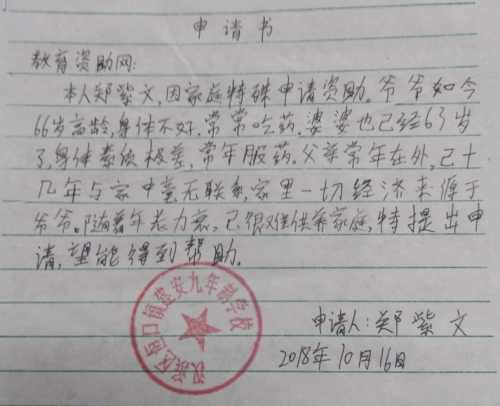 申请书
教育资助网:
本人郑紫文,因家庭特殊申请资助。爷爷如今
66岁高龄,身体不好,常常吃药,婆婆也已经63岁
了,身体素质极差,常年服药。父亲常年在外,已十
几年与家中毫无联系,家里一切经济来源于
爷爷。随着年老力衰,已很难供养家庭,特提出申
请,望能得到帮助。
汉滨区恒口镇建安九年制学校
申请人:郑紫文
2018年10月16日